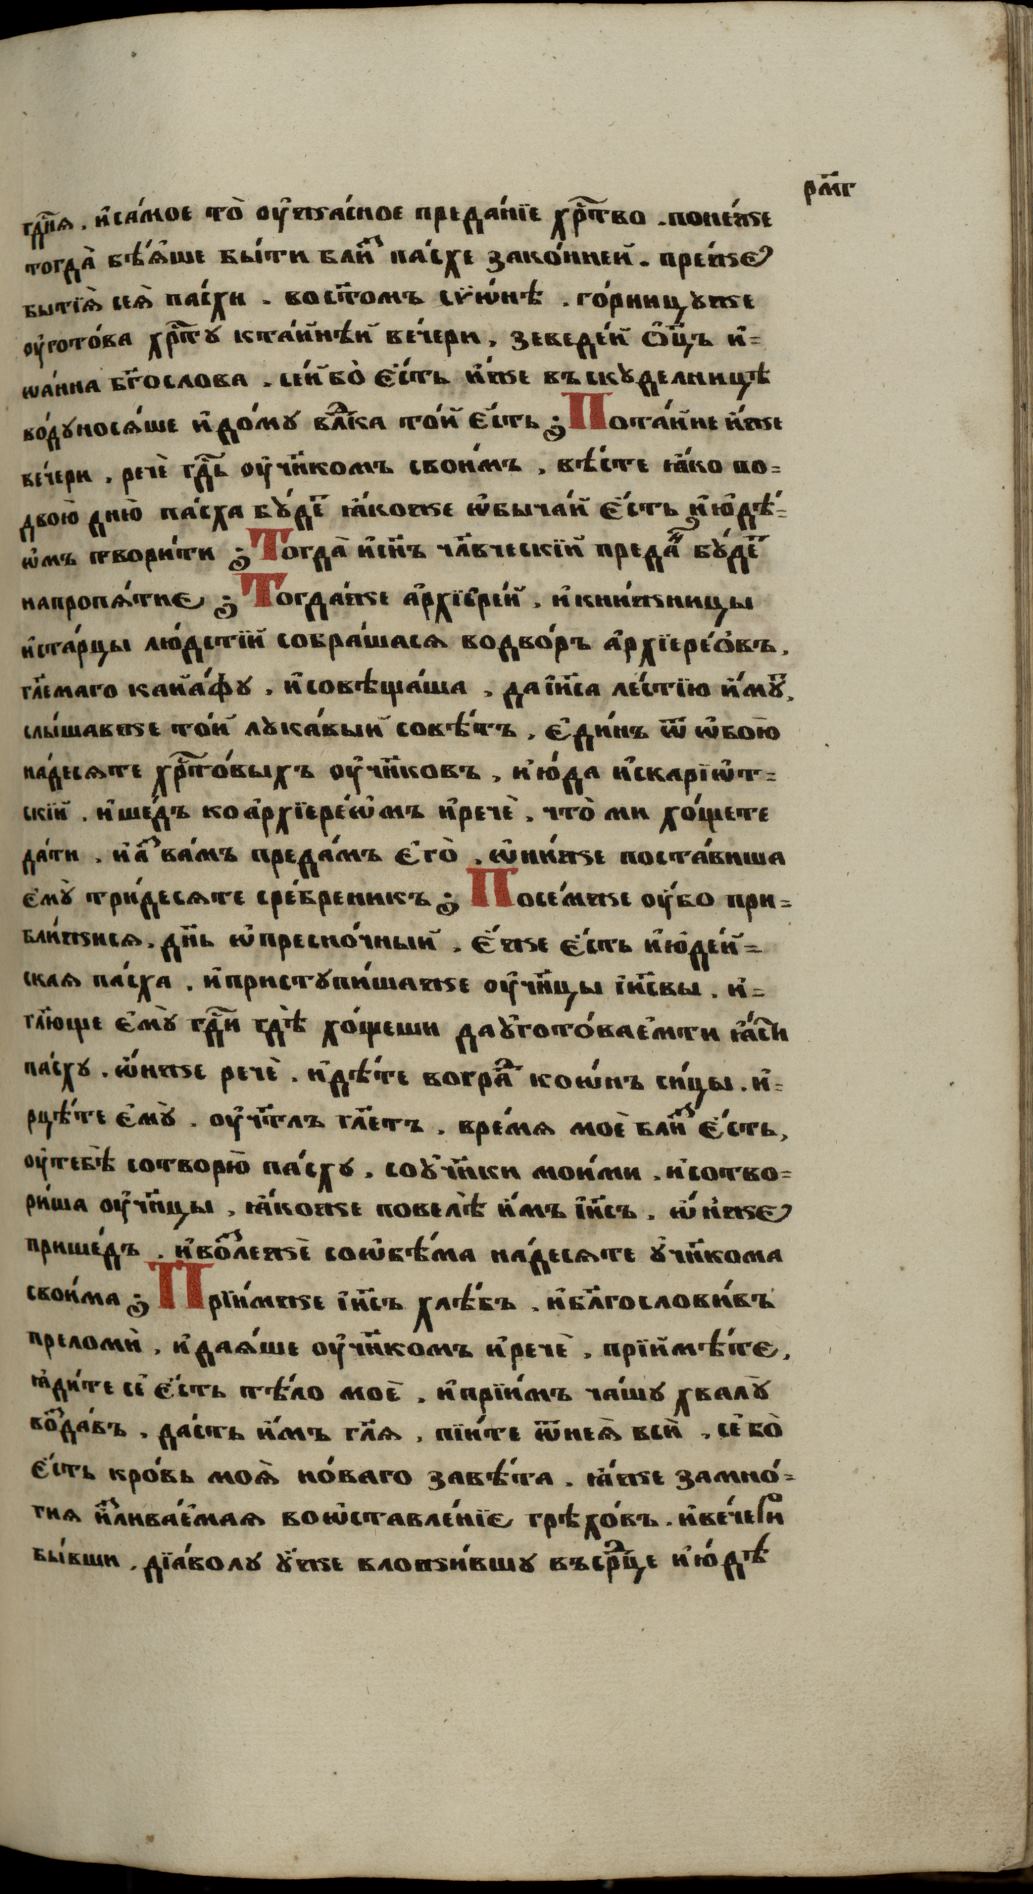 рм҃г
гдⷭ҇нѧ . и҆са́мое то̀ оу҆жа́сное преда́нїе хрⷭ҇тво . поне́же
тогда̀ бѣ́ѧше бы́ти блиⷥ҇ па́схе зако́нней . пре́же
бытїѧ̀ сеѧ̀ па́схи . восⷭ҇томъ сїѡ́нѣ . го́рницꙋже
оу҆гото́ва хрⷭ҇тꙋ кта́йнѣй ве́чери , зеведе́й ѻ҆ц҃ъ и҆=
ѡа́нна бг҃ослова . се́й бо̀ є҆́сть и҆́же въскꙋде́лницѣ
во́дꙋносѧ́ше и҆до́мꙋ влⷣка то́й є҆́сть ; Пота́йне и҆́же
ве́чери , речѐ гдⷭ҇ь оу҆чн҃комъ свои́мъ , вѣ́сте ꙗ҆́ко по=
двою̀ дню̀ па́сха бꙋ́деⷮ ꙗ҆́коже ѡ҆бы́чай є҆́сть и҆ю҆дѣ́=
ѡмъ твори́ти ; Тогда̀ и҆сн҃ъ чл҃вческїй преда́ⷩ бꙋ́деⷮ
напропѧ́тие ; Тогда́же а҆рхїере́й , и҆кни́жницы
и҆ста́рцы лю́дстїй собра́шасѧ водво́ръ а҆рхїере́ѻвъ ,
гл҃емаго каиа́фꙋ , и҆совѣща́ша , даі҆и҃са ле́стїю и҆́мꙋⷮ ,
слы́шавже то́й лꙋка́вый совѣ́тъ , є҆ди́нъ ѿ ѡ҆бою̀
на́десѧте хрⷭ҇то́выхъ оу҆чн҃ковъ , и҆ю́да и҆скарїѡ́т=
скїй . и҆ше́дъ коа҆рхїере́ѡмъ и҆речѐ , что̀ ми хо́щете
да́ти , и҆аⷥ҇ ва́мъ преда́мъ є҆го̀ . ѡ҆ни́же поста́виша
є҆мꙋ̀ три́десѧте сре́бреникъ ; Посе́мже оу҆́бо при=
бли́жисѧ , дн҃ь ѡ҆пресно́чный , є҆́же є҆́сть и҆ю҆де́й=
скаѧ па́сха . и҆пристꙋпи́шаже оу҆чн҃цы і҆и҃свы , и҆=
гл҃юще є҆мꙋ̀ гдⷭ҇и гдѣ̀ хо́щеши даꙋ҆гото́ваемти ꙗ҆́сⷭ҇и
па́схꙋ . ѡ҆́нже речѐ . и҆дѣ́те вогра́ⷣ коѡ́нъ си́цы . и҆=
рцѣ́те є҆мꙋ̀ . оу҆чт҃лъ гл҃етъ . вре́мѧ моѐ блиⷥ҇ є҆́сть ,
оу҆тебѣ̀ сотворю̀ па́схꙋ , соꙋ҆чн҃ки мои́ми , и҆сотво=
ри́ша оу҆чн҃цы , ꙗ҆́коже повелѣ̀ и҆́мъ і҆и҃съ . ѡ҆́нже
прише́дъ . и҆воⷥ҇лежѐ соѡ҆бѣ́ма на́десѧте ꙋ҆чн҃кома
свои́ма ; Прїи́мже і҆и҃съ хлѣ́бъ , и҆бл҃гослови́въ
преломѝ , и҆даѧ́ше оу҆чн҃комъ и҆речѐ , прїимѣ́те ,
ꙗ҆ди́те сѐ є҆́сть тѣ́ло моѐ , и҆прїи́мъ ча́шꙋ хвалꙋ̀
воⷥ҇да́въ , да́сть и҆́мъ гл҃ѧ , пїи́те ѿнеѧ̀ всѝ , се҆ бо̀
є҆́сть кро́вь моѧ̀ но́ваго завѣ́та , ꙗ҆́же замно́=
гиѧ и҆ⷥ҇лива́емаѧ воѡ҆ставле́нїе грѣхо́въ . и҆ве́чеⷬи
бы́вши , дїа́волꙋ ꙋ҆́же вложи́вшꙋ въсрⷣце и҆ю́дѣ